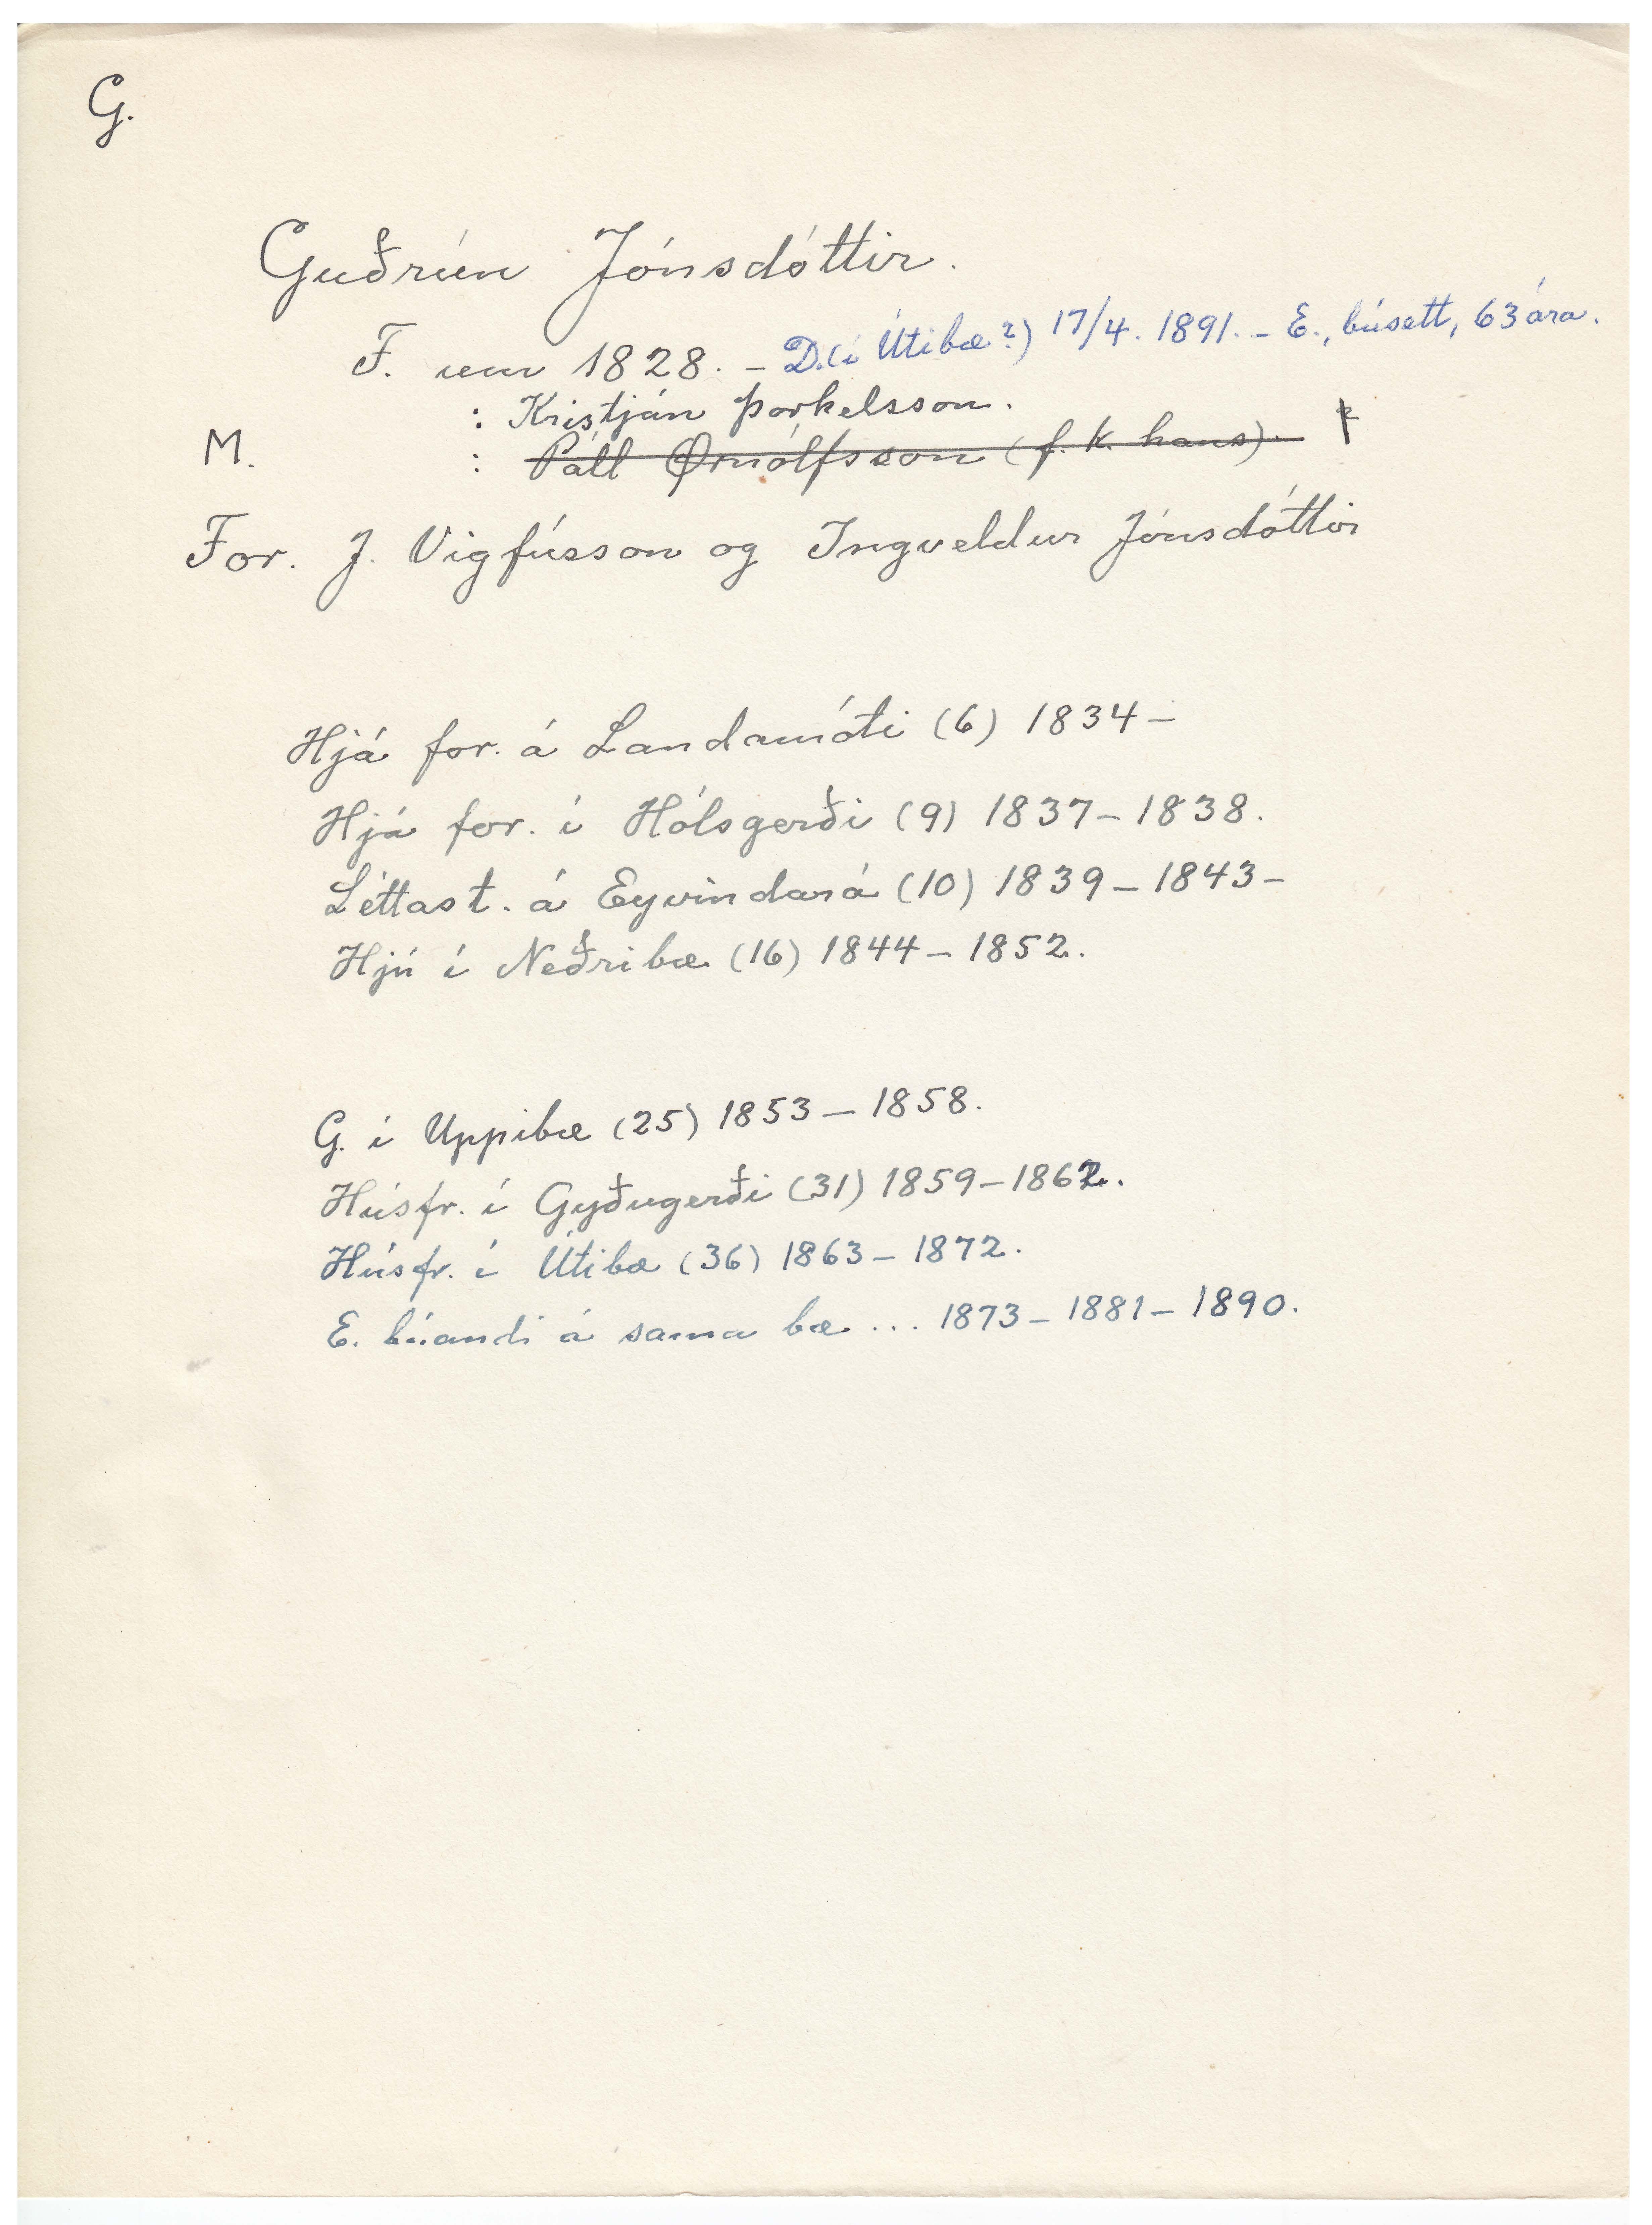 G.
Guðrún Jónsdóttir.
F. um 1828. – D. (í Útibæ?) 17/4. 1891. – E., búsett, 63 ára.
: Kristján Þorkelsson.
M. : Páll Ørnólfsson (f. k. hans).
For. J. Vigfússon og Ingveldur Jónsdóttir
Hjá for. á Landamóti (6) 1834 –
Hjá for. í Hólsgerði (9) 1837 – 1838.
Léttast. á Eyvindará (10) 1839 – 1843 –
Hjú í Neðribæ (16) 1844 – 1852.
G. í Uppibæ (25) 1853 – 1858.
Húsfr. í Gyðugerði (31) 1859 – 1862.
Húsfr. í Útibæ (36) 1863 – 1872.
E. búandi á sama bæ ... 1873 – 1881 – 1890.